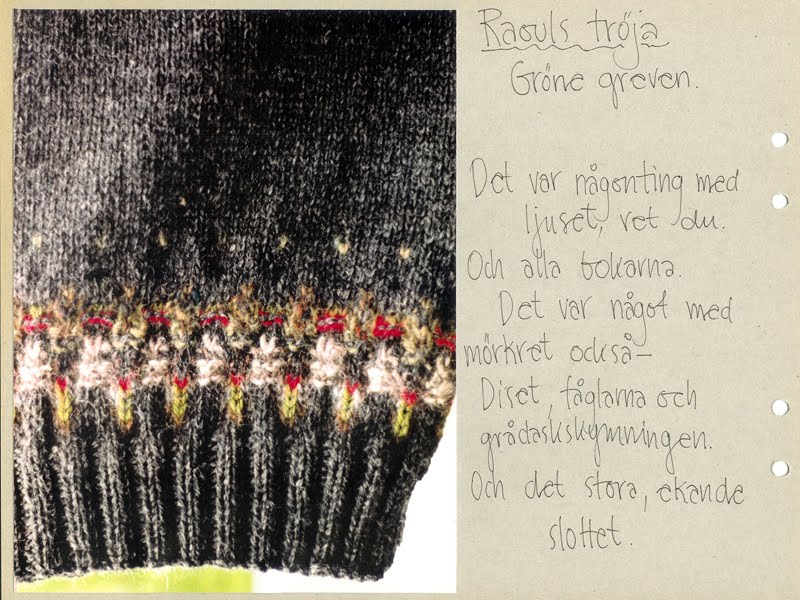 Raouls tröja
Gröne greven.
Det var någonting med
ljuset, vet du.
Och alla bokarna.
Det var något med
mörkret också–
Diset, fåglarna och
grådaskskymningen.
Och det stora, ekande
slottet.